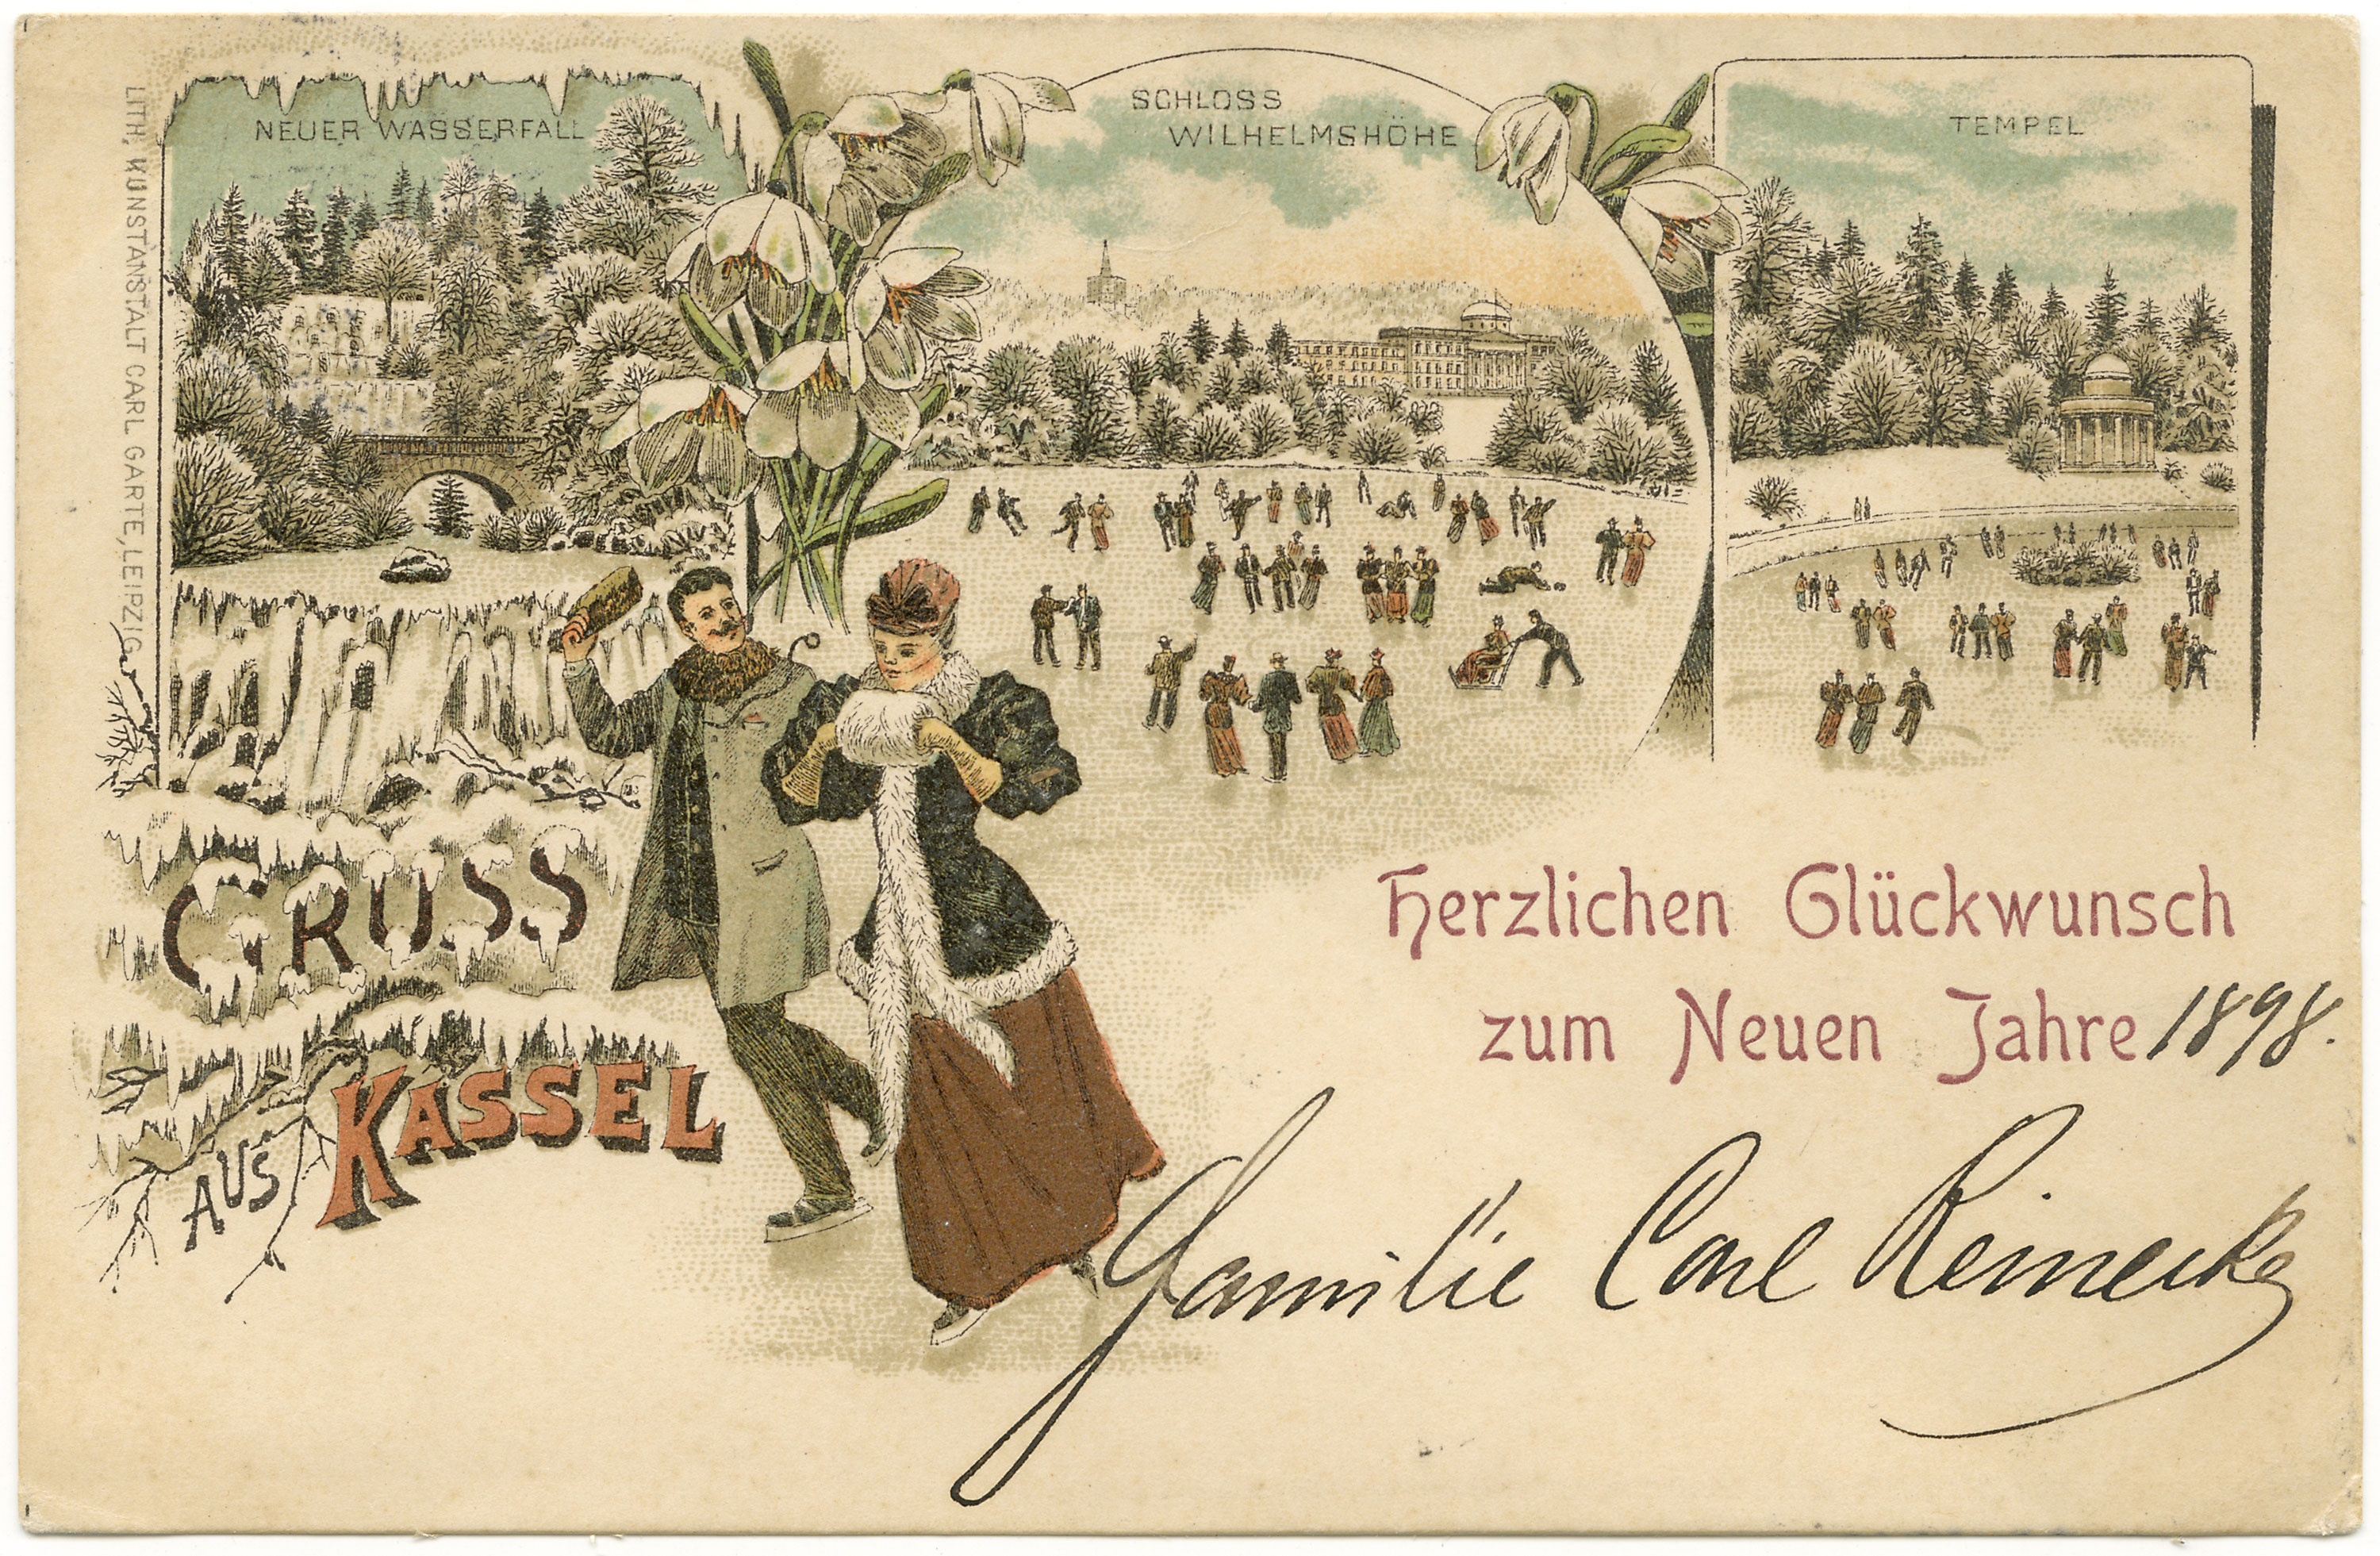 NEUER WASSERFALL
SCHLOSS
WILHELMSHÖHE
TEMPEL
LITH. KUNSTANSTALT CARL GARTE, LEIPZIG.
GRUSS
AUS KASSEL
Herzlichen Glückwunsch
zum Neuen Jahre 1898.
Familie Carl Reinecke